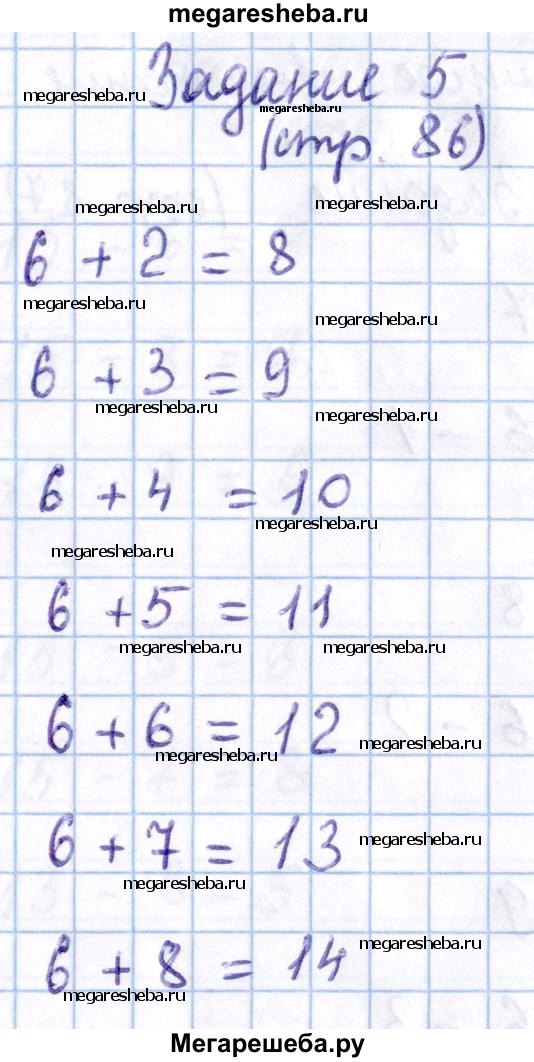 megaresheba.ru
Задание 5
megaresheba.ru
megaresheba.ru
(стр. 86)
megaresheba.ru
megaresheba.ru
6 + 2 = 8
megaresheba.ru
megaresheba.ru
6 + 3 = 9
megaresheba.ru
megaresheba.ru
6 + 4 = 10
megaresheba.ru
megaresheba.ru
6 + 5 = 11
megaresheba.ru
megaresheba.ru
6 + 6 = 12
megaresheba.ru
megaresheba.ru
6 + 7 = 13
megaresheba.ru
megaresheba.ru
6 + 8 = 14
megaresheba.ru
megaresheba.ru
Мегарешеба.ру